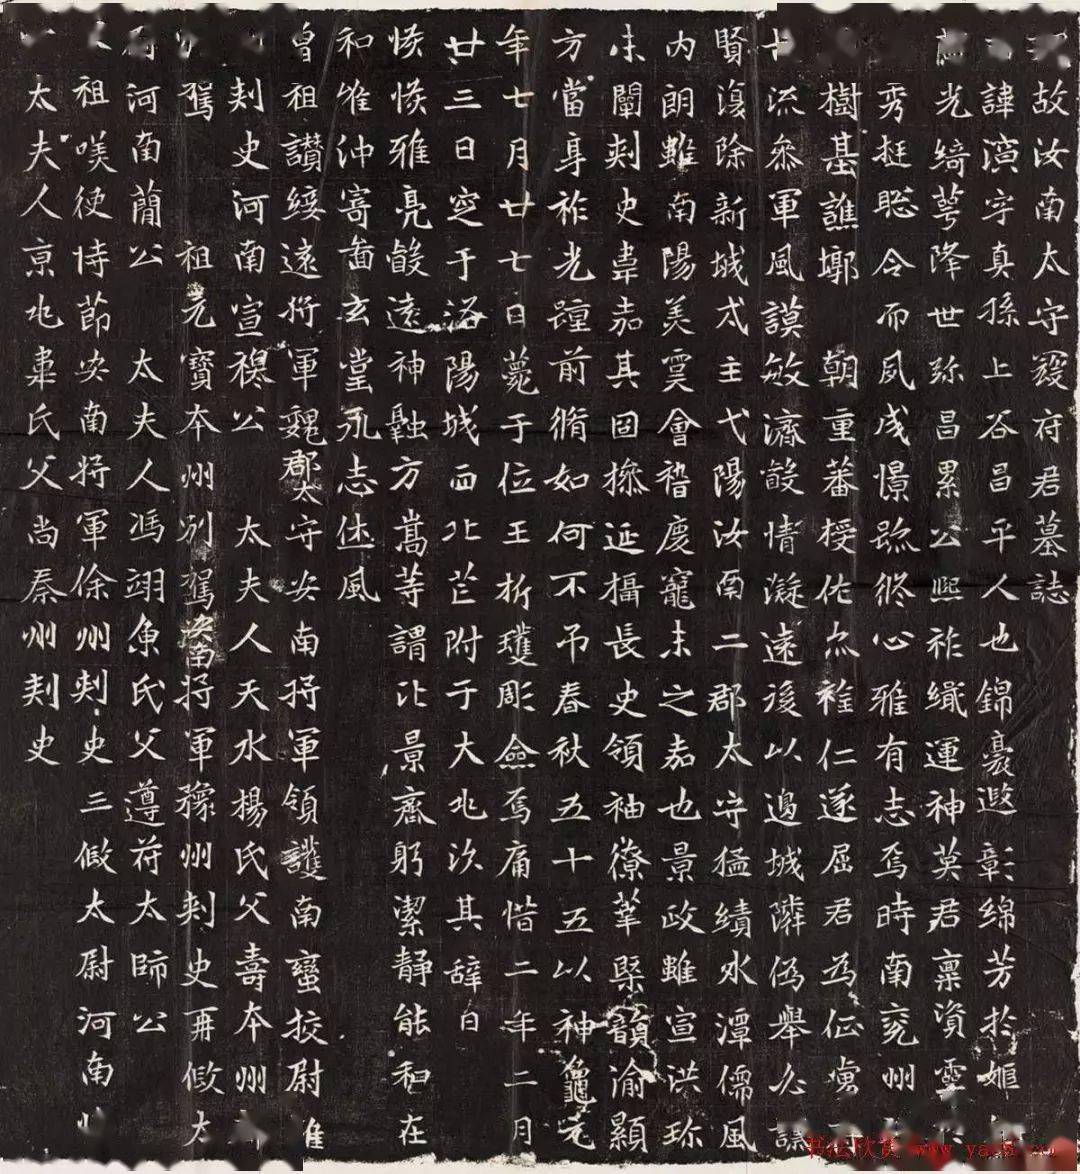 故汝南太守寇府君墓誌
諱演字真孫上谷昌平人也錦裔遐彰綿芳於姬
光綺萼降世弥昌累公熙祚織運神英君稟資靈
秀挺聡令而夙成憬踈終心雅有志焉時南兗州
樹基譙墎朝重蕃授佐亦雜仁遂屈君為征虜
流叅軍風謨敏濟毀情凝遠後以邊城隣偽舉必
賢復除新城戈主弋陽汝南二郡太守猛績水潭儒風
內朗雖南陽美寞會譖慶寵未之嘉也景政雖宣洪珎
未闡刾史韋嘉其固操延攝長史領袖僚革槩韻渝顯
方當身祚光蹱前脩如何不弔春秋五十五以神龜元
年七月廿七日薨于位王析瓊彫僉焉痛惜二年二月
廿三日窆于洛陽城西北芒附于大兆次其辭曰
惔惔雅亮毀遠神融方嵩等謂比景齋躬潔靜能和在
和惟沖寄啚玄堂永志徃風
曾祖讚綏遠將軍魏郡太守安南將軍領護南蠻挍尉雍
刾史河南宣穆公 太夫人天水楊氏父壽本州
駕 祖元寶本州別駕安南將軍豫州刾史再假太
河南簡公 太夫人馮翊魚氏父遵苻太師公
祖嘆使恃節安南將軍徐州刾史三假太尉河南
太夫人京兆韋氏父尚秦州刾史
书法欣赏